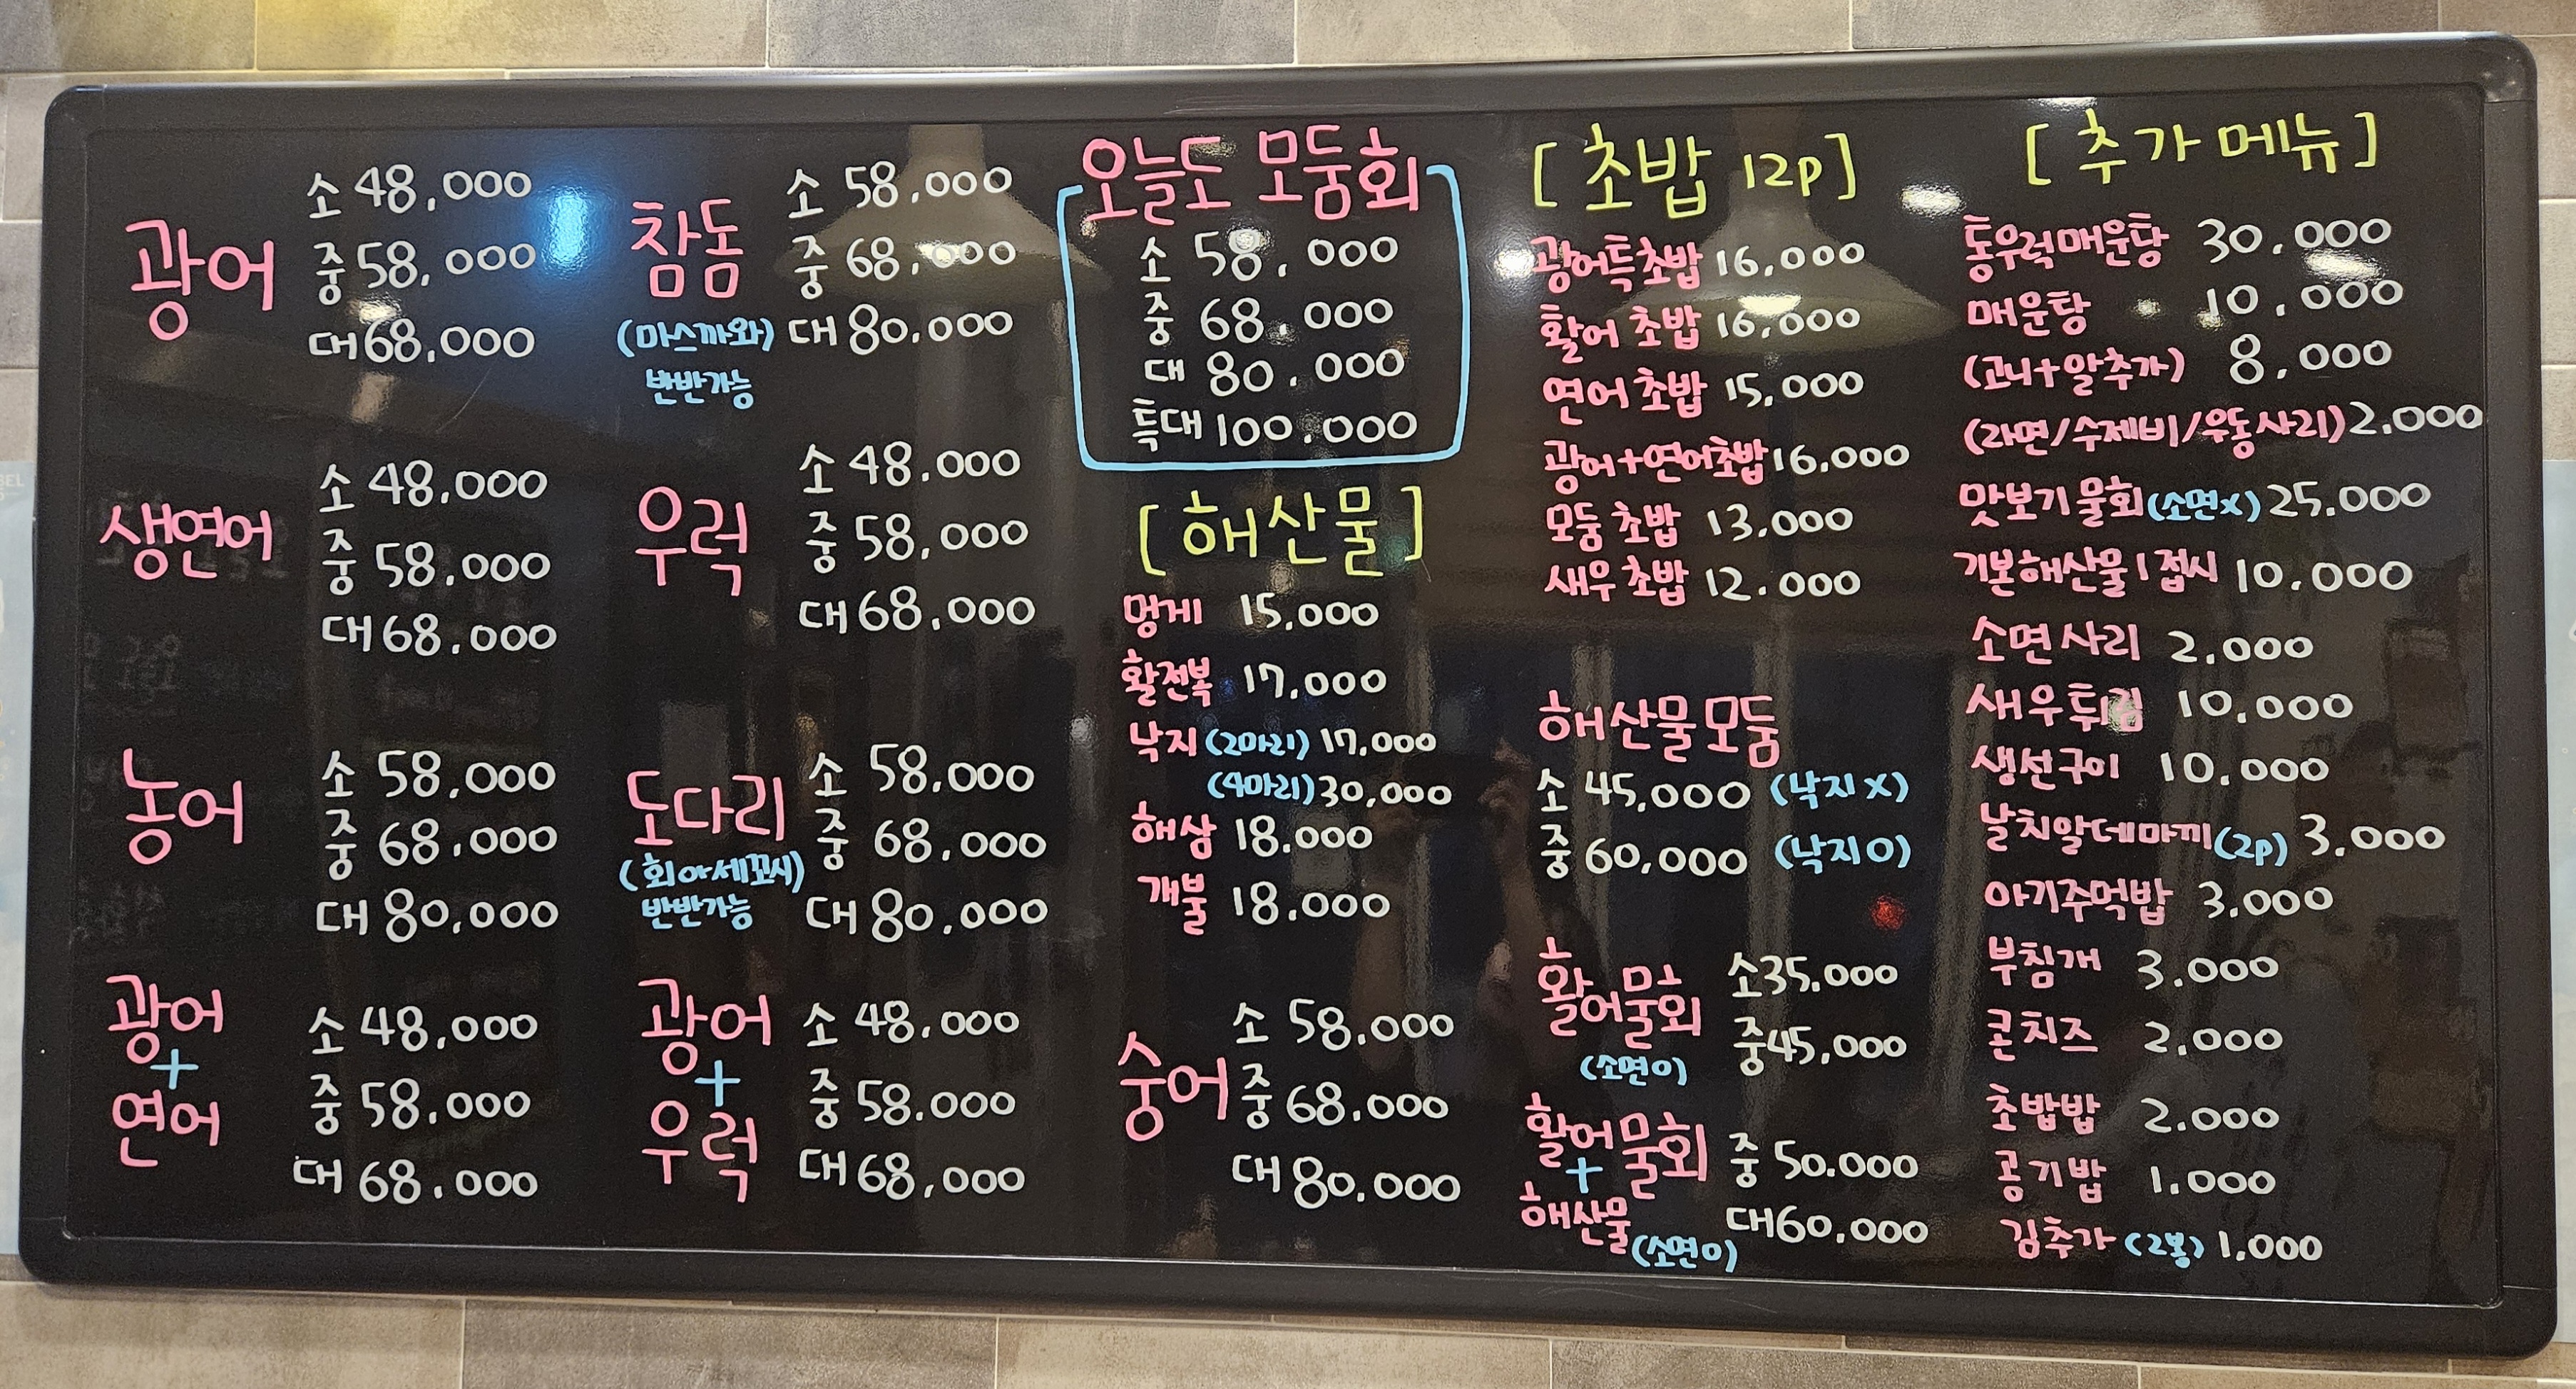 광어
소 48,000
중 58,000
대 68,000
생연어
소 48,000
중 58,000
대 68.000
농어
소 58,000
중 68,000
대 80,000
광어
+
연어
소 48,000
중 58.000
대 68.000
참돔
(마스까와)
반반가능
소 58,000
중 68,000
대 80,000
우럭
소 48.000
중 58,000
대 68,000
도다리
(회아세꼬시)
반반가능
소 58,000
중 68,000
대 80,000
광어
+
우럭
소 48.000
중 58.000
대 68,000
오늘도 모둠회
소 58.000
중 68.000
대 80.000
특대 100.000
[해산물]
멍게 15,000
활전복 17,000
낙지 (2마리) 17,000
(4마리) 30,000
해삼 18.000
개불 18.000
숭어
소 58.000
중 68.000
대 80.000
[초밥 12p]
광어특초밥 16,000
활어 초밥 16,000
연어 초밥 15,000
광어+연어초밥 16,000
모둠 초밥 13,000
새우 초밥 12.000
해산물모둠
소 45,000 (낙지X)
중 60,000 (낙지O)
활어물회
(소면O)
소 35,000
중 45,000
활어물회
+
해산물
(소면O)
중 50.000
대 60,000
[추가메뉴]
통우럭매운탕 30.000
매운탕 10,000
(고니+알추가) 8,000
(라면/수제비/우동사리) 2.000
맛보기 물회 (소면X) 25.000
기본해산물 1접시 10.000
소면사리 2.000
새우튀김 10.000
생선구이 10.000
날치알데마끼 (2p) 3.000
아기주먹밥 3.000
부침개 3.000
콘치즈 2.000
초밥밥 2.000
공기밥 1.000
김추가 (2봉) 1,000